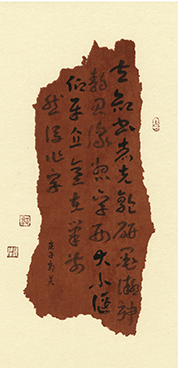 夫欲書者先乾研墨凝神
靜思預想字形大小偃
仰平直意在筆前
然後作字
庚子